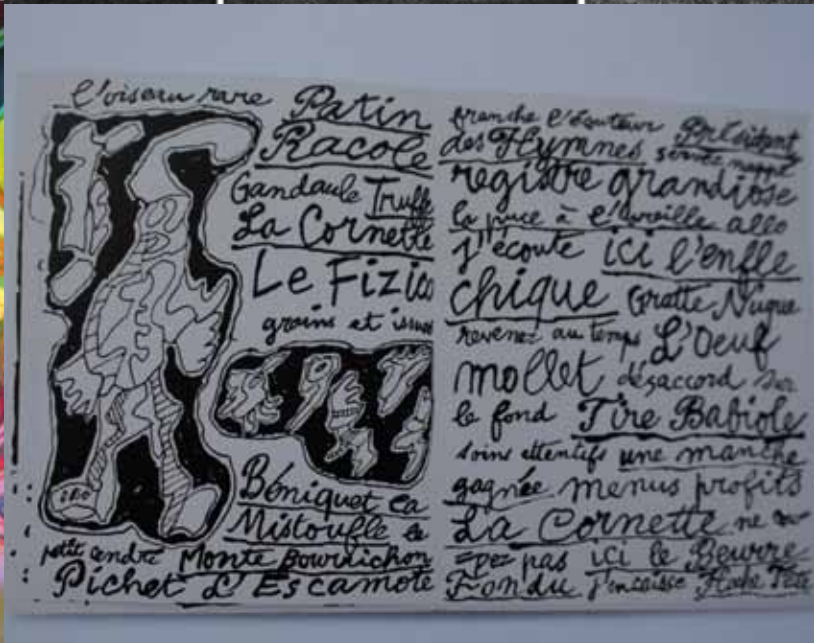 l'oiseau rare Patin
Racole
Gandaule Truffe
La Cornette
Le Fizico
grains et issues
Béniquet la
Mistoufle le
petit cendré Monte Bourrichon
Pichet L'Escamote
franche l'Equteur Président
des Hymnes
registre grandiose
la puce à l'oreille allo
j'écoute ici l'enfle
chique Gratte Nuque
revenez au temps L'Oeuf
mollet désaccord sur
le fond Tire Babiole
soins attentifs une manche
gagnée menus profits
La Cornette ne cou
=pez pas ici le Beurre
Fondu j'encaisse Tête